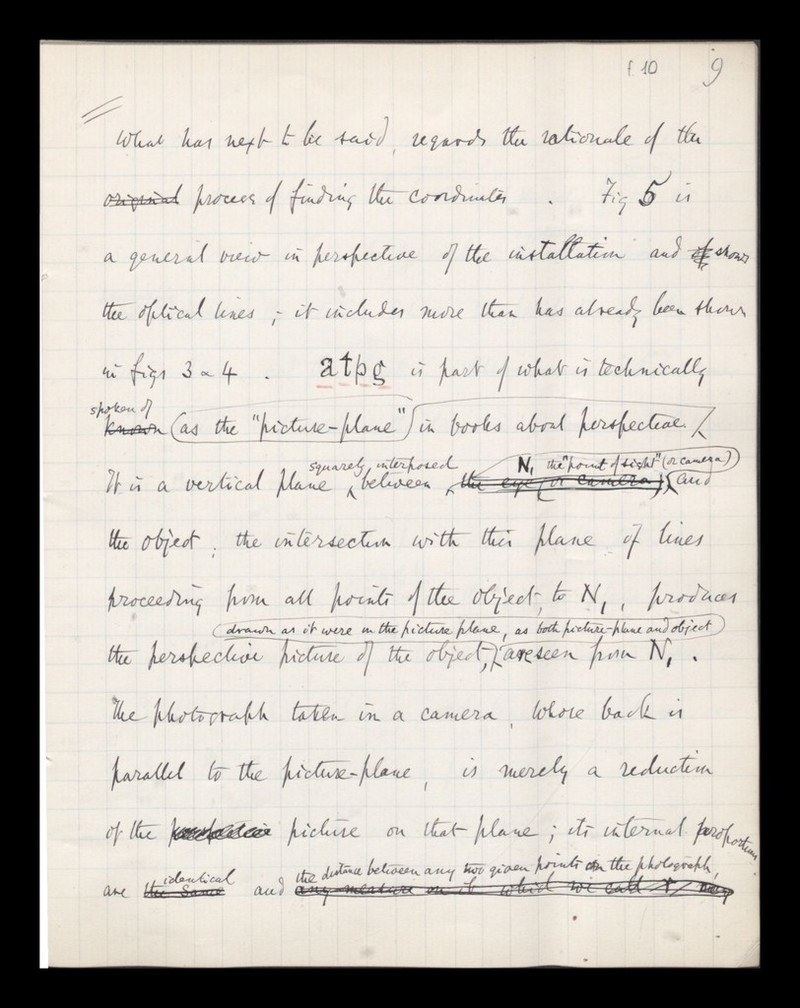 f. 10 9
What has next to be said, regards the rationale of the
original process of finding the coordinates . Fig 5 is
a general view in perspective of the installation and of shows
the optical lines ; it includes more than has already been shown
in figs 3 & 4 . atpg is part of what is technically
spoken of
known (as the "picture-plane") in books about perspective.
squarely interposed N, the "point of sight" (or camera)
It is a vertical plane between the eye (or camera) and
the object ; the intersection with this plane of lines
proceeding from all points of the object, to N, , produces
drawn as it were on the picture plane, as both picture-plane and object
the perspective picture of the object, are seen from N, .
The photograph taken in a camera, whose back is
parallel to the picture-plane, is merely a reduction
of the perspective picture on that plane ; its internal proportions
identical the distance between any two given points on the photograph,
are the same and any measure on it which we call